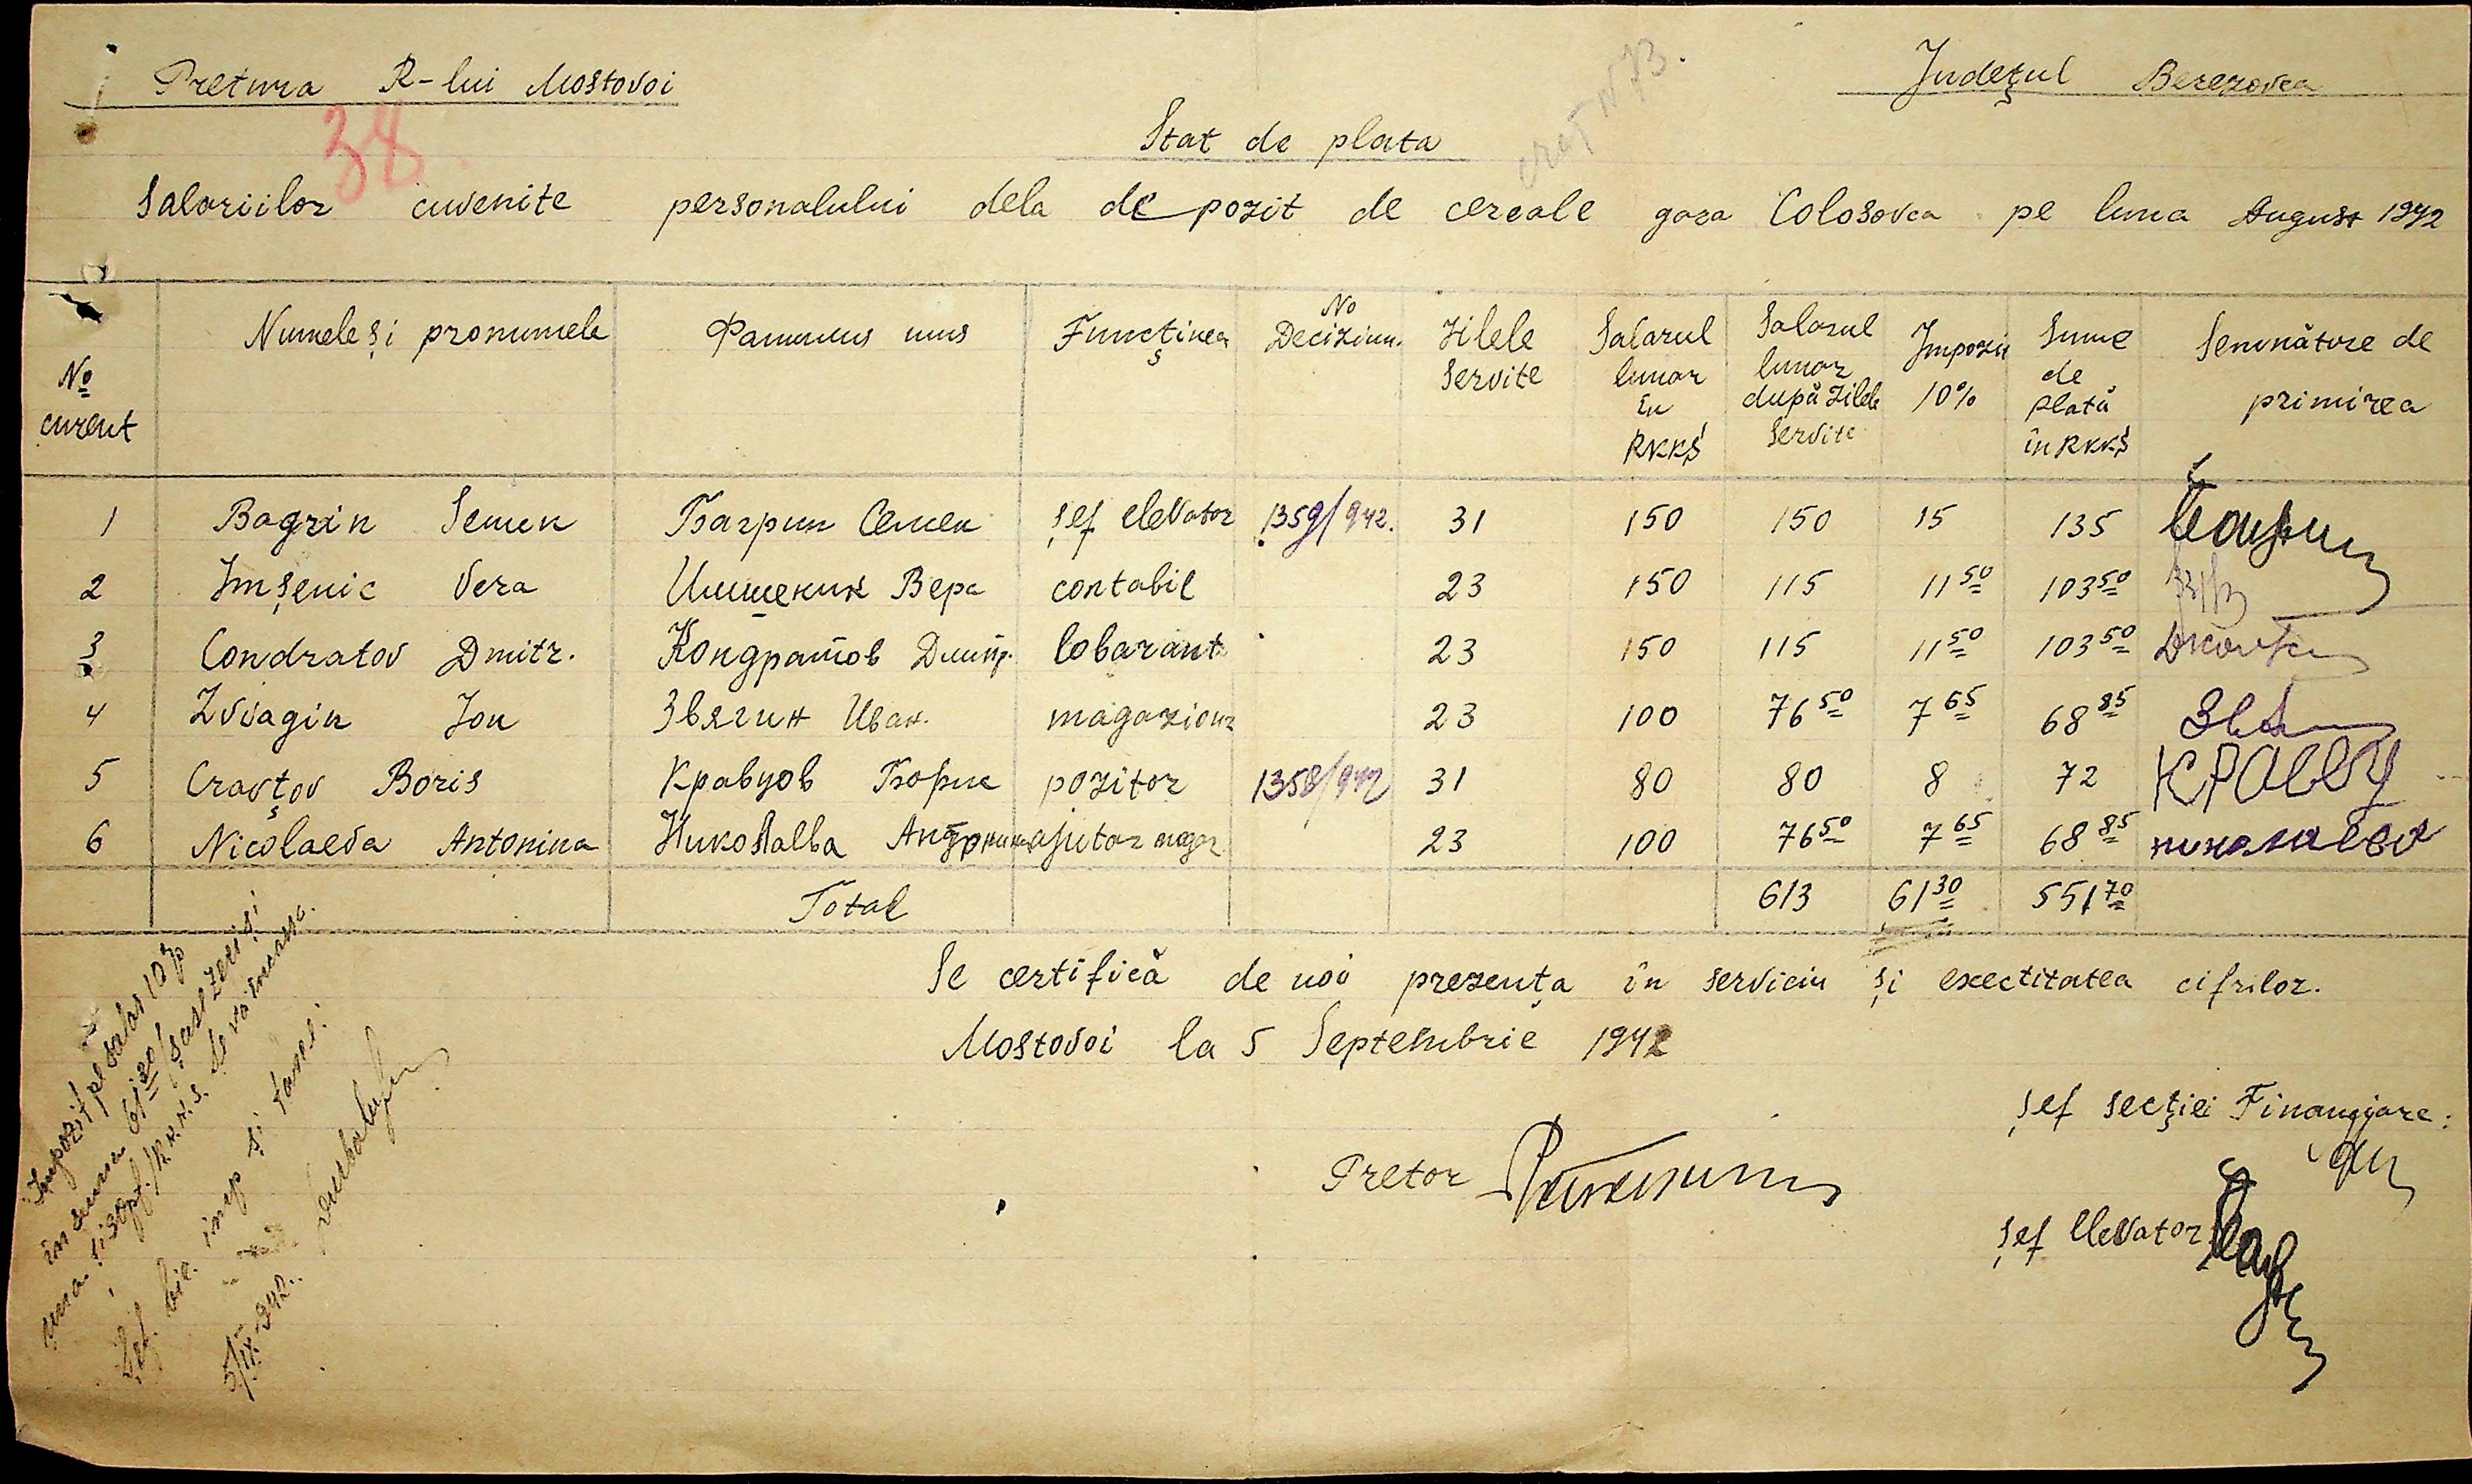 Pretura R-lui Mostovoi
Județul Berezovca
38
N 73.
Stat de plata
Salariilor cuvenite personalului dela depozit de cereale gara Colosovca pe luna August 1942
No curent | Numele și pronumele | Фамилия имя | Funcținea | No Deciziun. | Zilele servite | Salarul lunar în RKKS | Salarul lunar după zilele servite | Impozit 10% | Sume de plată în RKKS | Semnăture de primirea
1 Bagrin Semen Багрин Семен șef elevator 1359/942. 31 150 150 15 135
2 Imșenic Vera Имшеник Вера contabil 23 150 115 11 50 103 50
3 Condratov Dmitr. Кондратов Дмитр. lobarant 23 150 115 11 50 103 50
4 Zviagin Ion Звягин Иван. magazioner 23 100 76 50 7 65 68 85
5 Cravțov Boris Кравцов Борис pozitor 1358/942 31 80 80 8 72 Кравцу
6 Nicolaeva Antonina Николаева Антонина ajutor magaz. 23 100 76 50 7 65 68 85 николаева
Total 613 61 30 551 70
Se certifică de noi prezența în serviciu și exectitatea cifrilor.
Mostovoi la 5 Septembrie 1942
șef secției Financiare:
Pretor
șef Elevator
Impozit pe salar 10%
în suma 61 30/șasezeci și
una și 30 pf./R.K.K.S. se va încasa.
Șef. bir. imp și taxe:
5/IX-942.